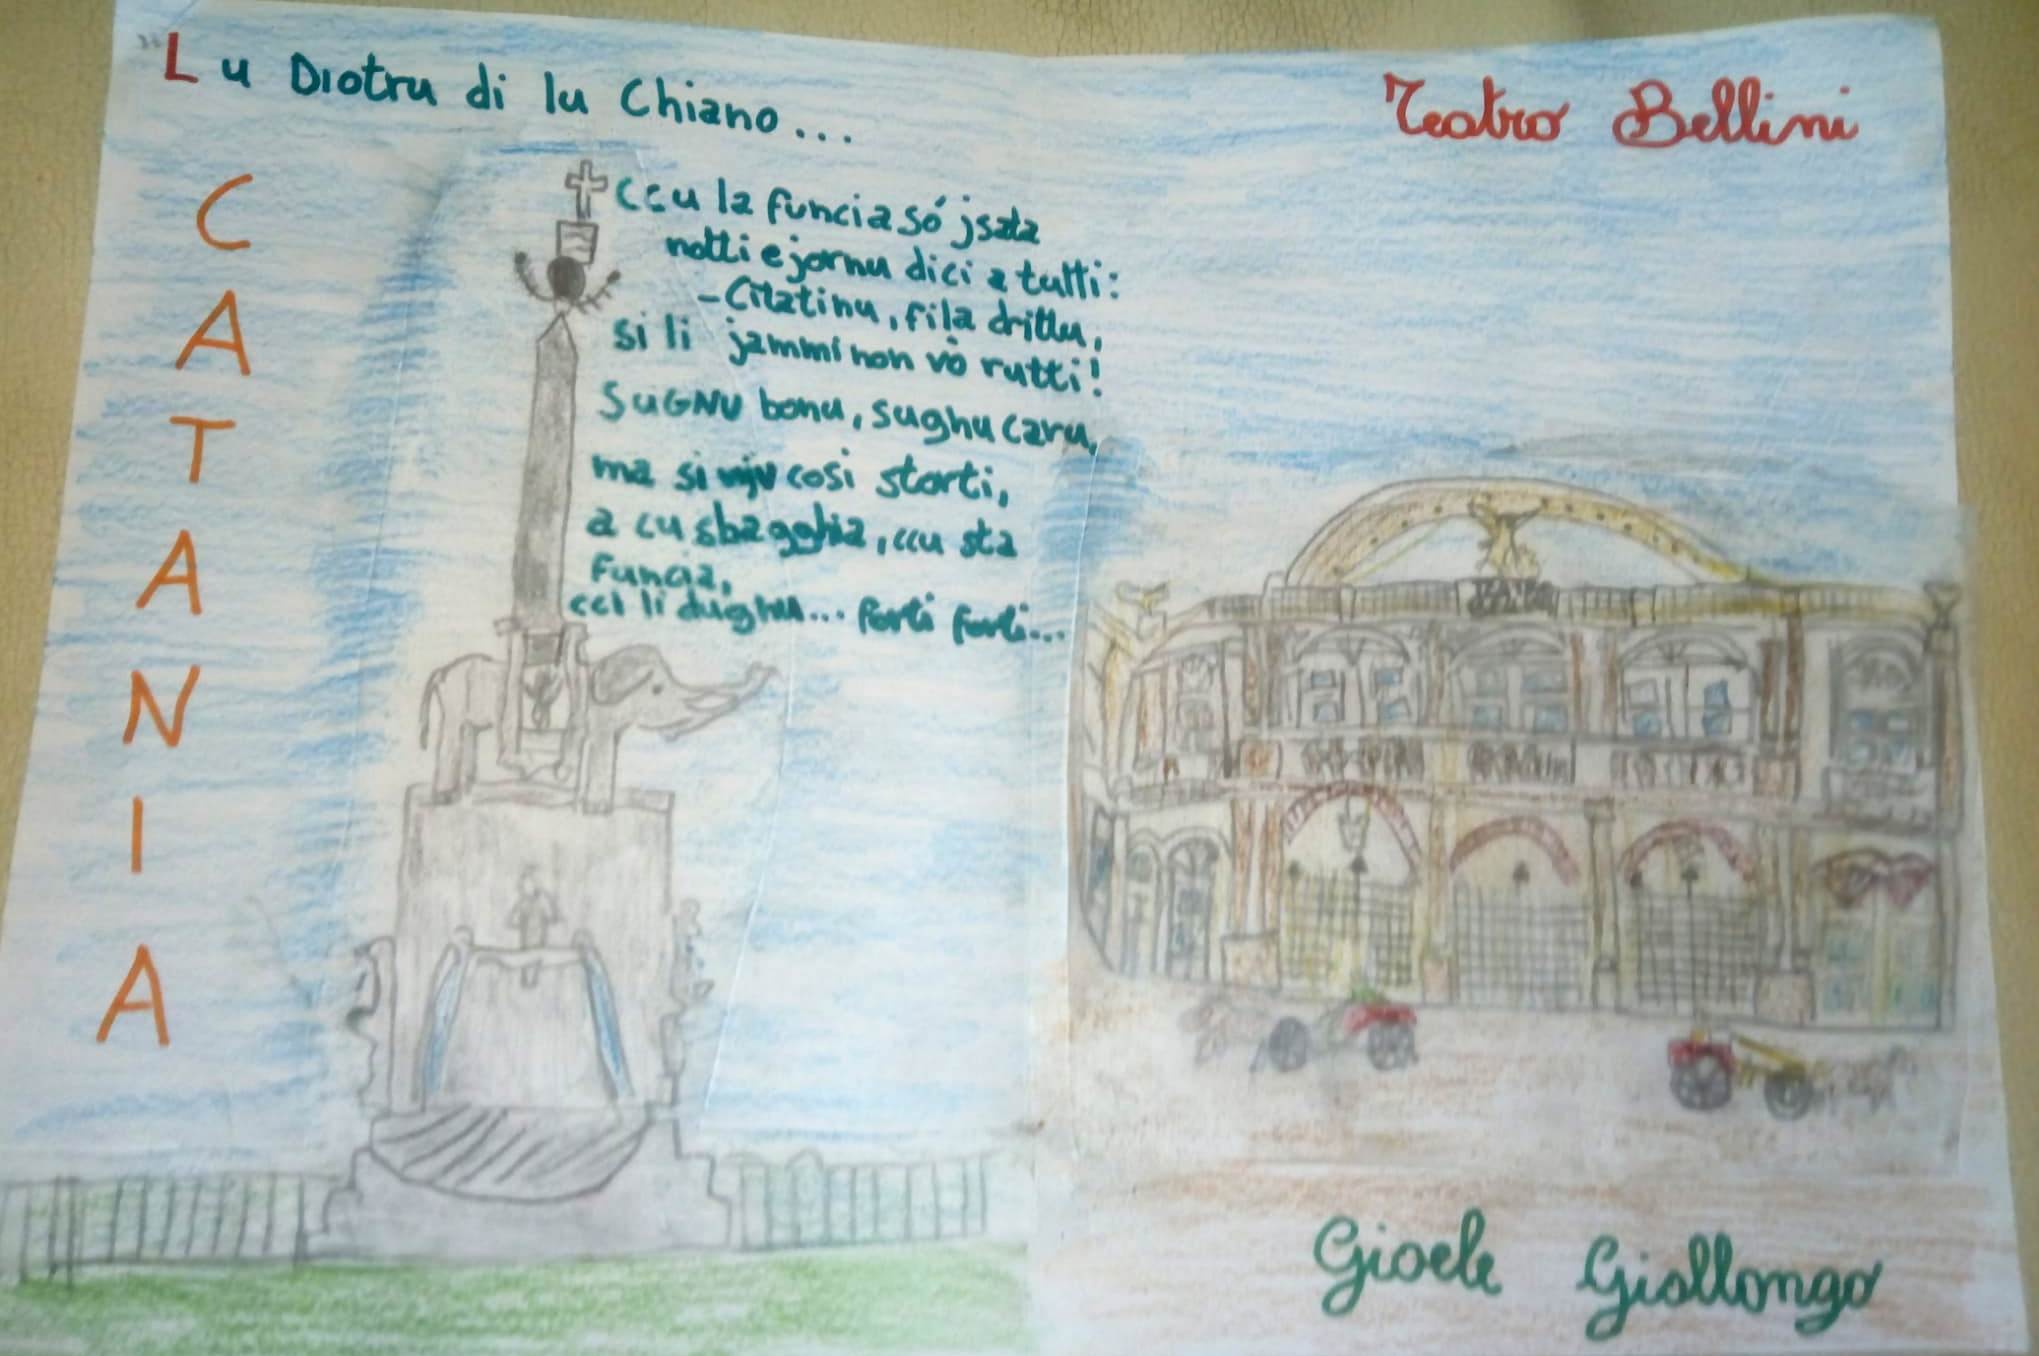 "Lu Diotru di lu Chiano...
CATANIA
Ccu la funcia só jsata
notti e jornu dici a tutti:
- Citatinu, fila drittu,
si li jammi non vò rutti!
SUGNU bonu, sugnu caru,
ma si viju cosi storti,
a cu sbagghia, ccu sta
funcia,
cci li dugnu... forti forti...
Teatro Bellini
Gioele Giallongo